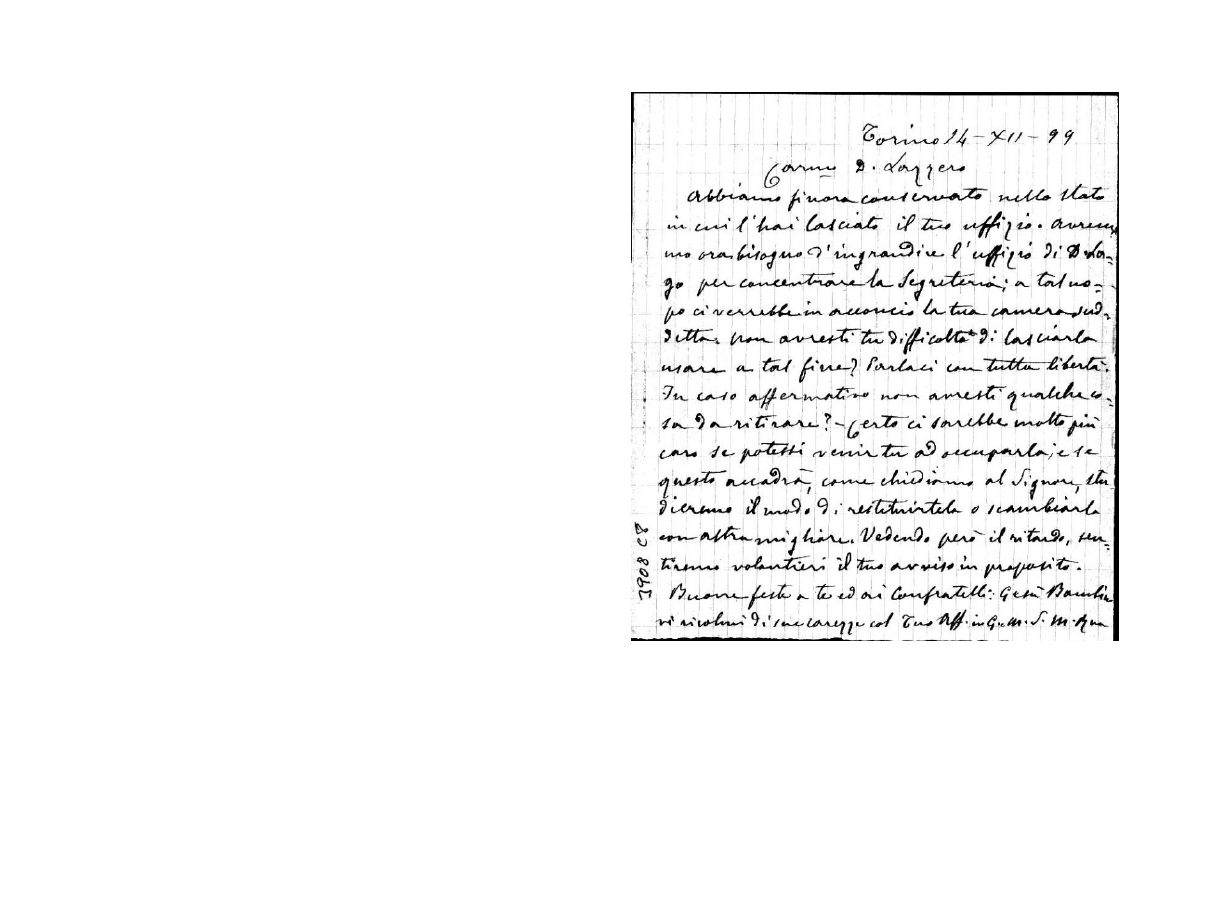 Torino 14-XII-99
Carmo D. Lazzero
Abbiamo finora conservato nello stato
in cui l'hai lasciato il tuo uffizio. Avrem
mo ora bisogno d'ingrandire l'uffizio di D. La-
go per concentrare la Segreteria; a tal uo-
po ci verrebbe in acconcio la tua camera sud-
detta. Non avresti tu difficoltà di lasciarla
usare a tal fine? Parlaci con tutta libertà.
In caso affermativo non avresti qualche co-
sa da ritirare? - Certo ci sarebbe molto più
caro se potessi venir tu ad occuparla; e se
questo accadrà, come chiediamo al Signore, stu
dieremo il modo di restituirtela o scambiarla
con altra migliore. Vedendo però il ritardo, sen-
tiremo volantieri il tuo avviso in proposito.
Buone feste a te ed ai Confratelli: Gesù Bambin
vi ricolmi di sue carezze col Tuo Aff. in G. M. S. M. Rua
3908 C8